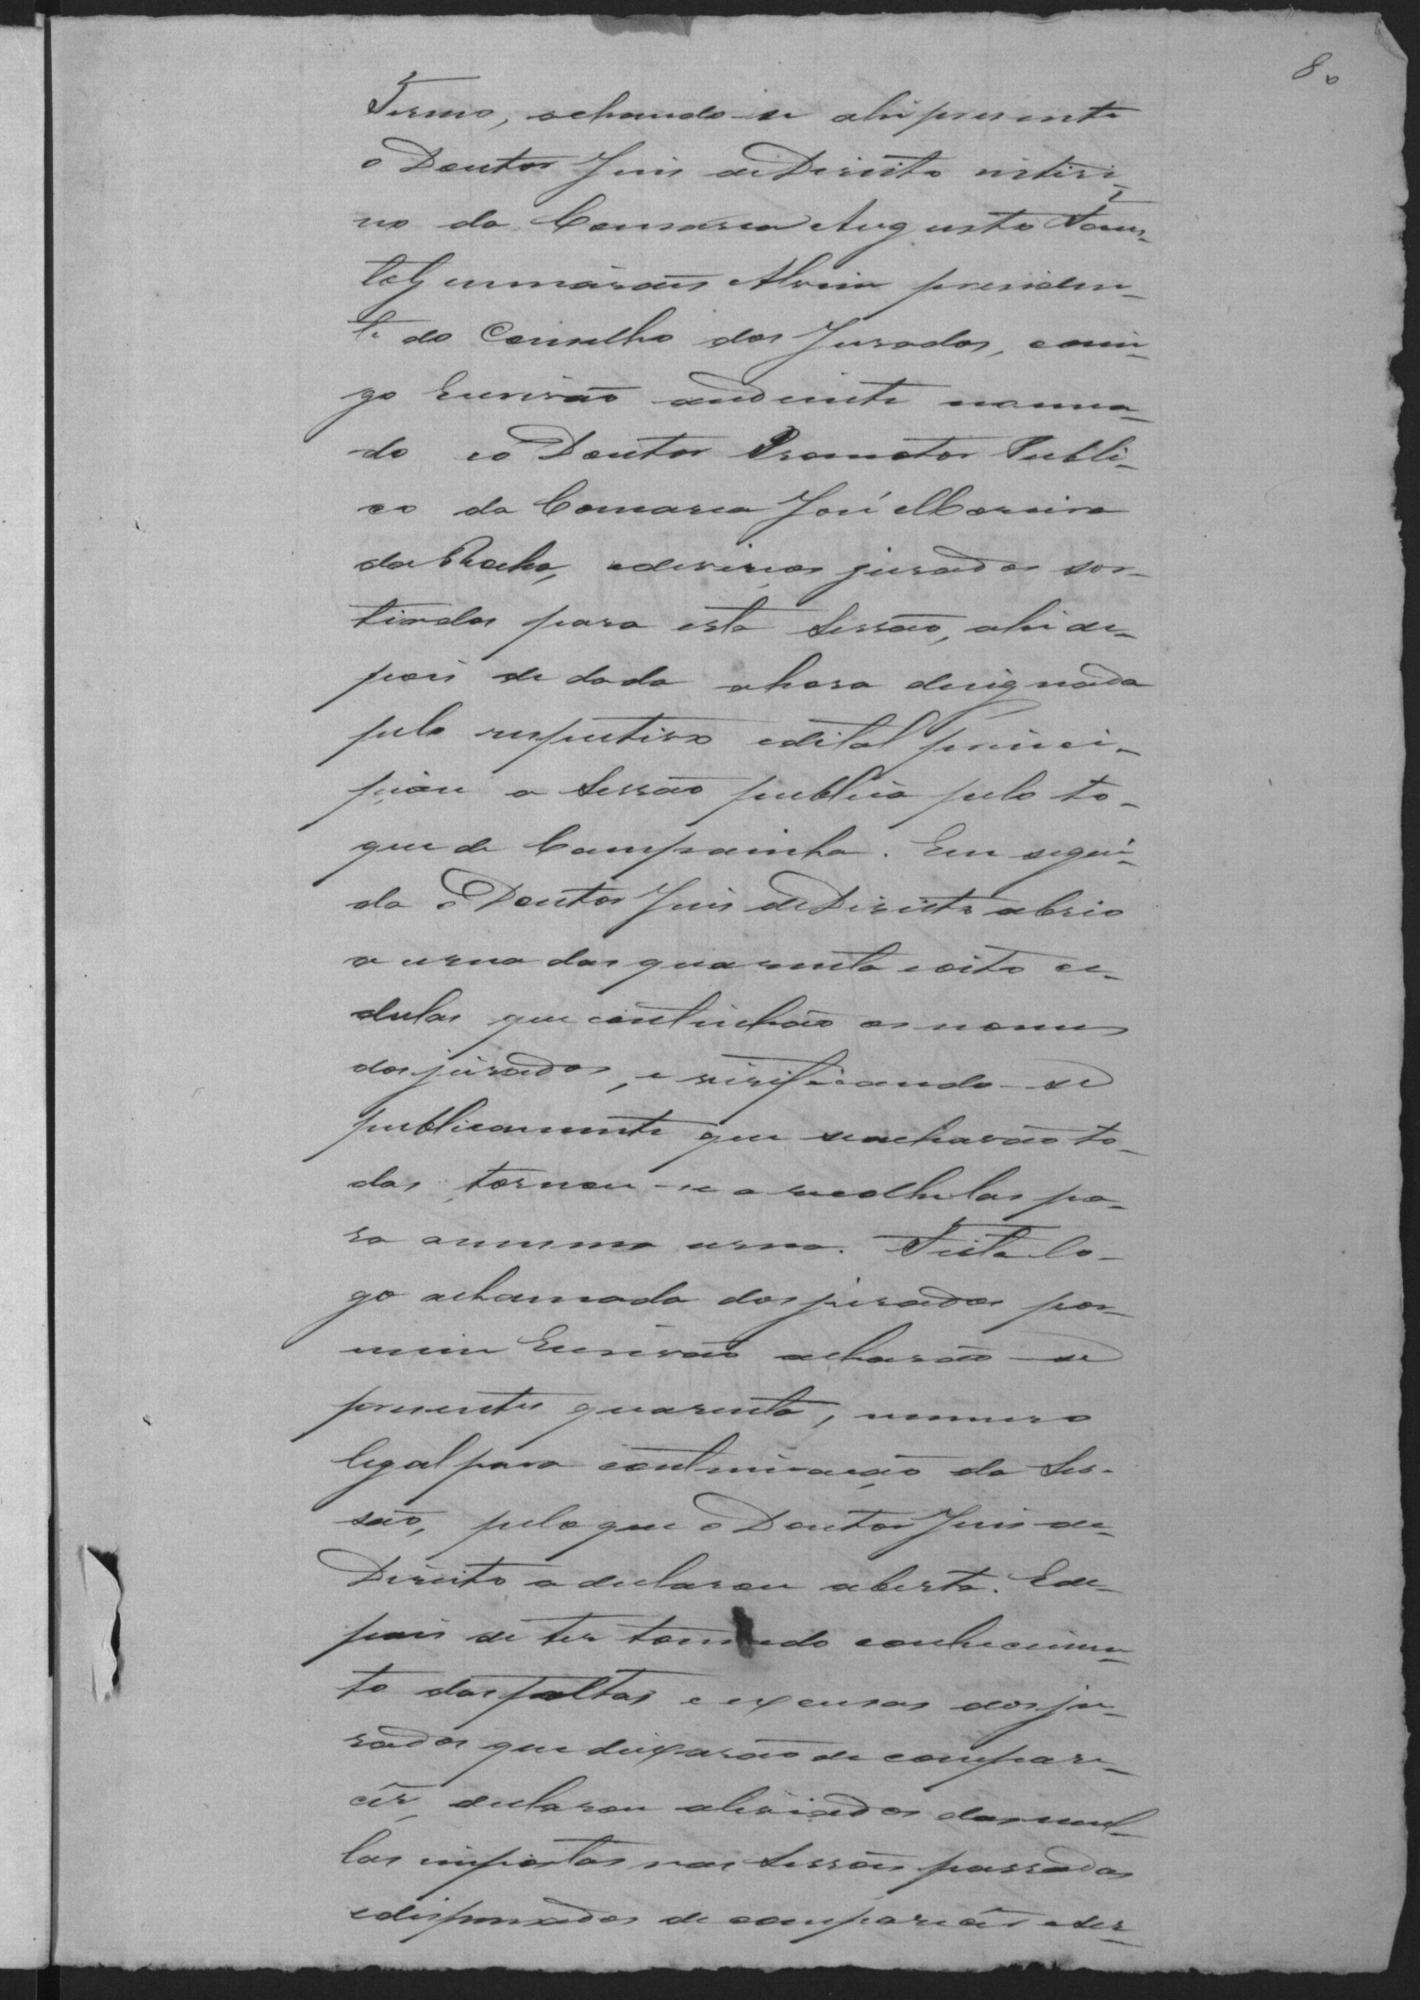 80
Termo, achando-se ahi presente
o Doutor Juis de Direito interi-
no da Comarca Augusto
Guimarães presiden-
te do Conselho dos Jurados, comi-
go Escrivão audiente nomea-
do e o Doutor Promotor Publi-
co da Comarca José Moreira
da Rocha, e diversos jurados sor-
tiados para esta Sessão, ahi de-
pois de dada a hora designada
pelo respectivo edital princi-
piou a Sessão publica pelo to-
que de Campainha. Em segui-
da o Doutor Juis de Direito abrio
a urna das quarenta e oito ce-
dulas que continhão os nomes
dos jurados, e virificando-se
publicamente que se acharão to-
das, tornou-se a recolhelas pa-
ra a mesma urna. Feita lo-
go a chamada dos jurados por
mim Escrivão acharão-se
presentes quarenta, numero
legal para continuação da Ses-
são, pelo que o Doutor Juis de
Direito a declarou aberta. E de-
pois de ter tomado conhecimen-
to das faltas e excusas dos ju-
rados que deixarão de compare-
cêr, declarou aliviados das mul-
tas impostas nas Sessões passadas
e dispensados de comparecêr e ser-